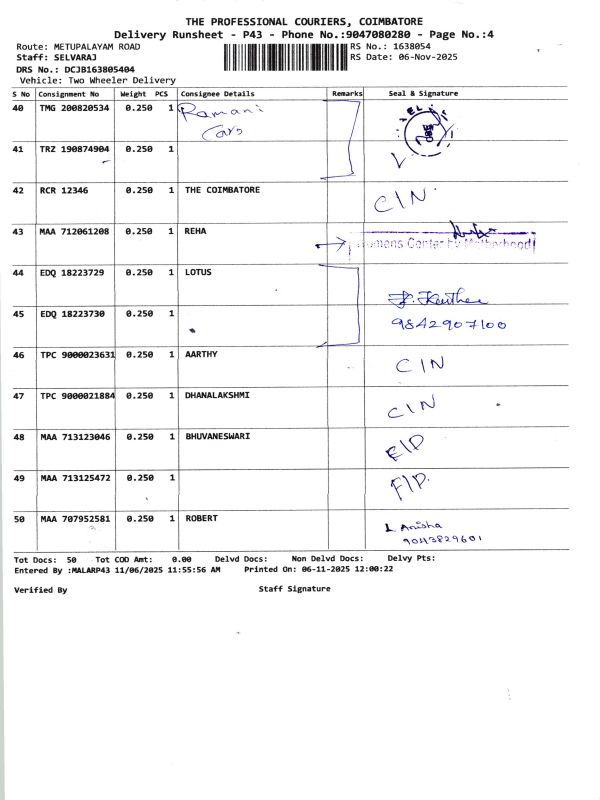 THE PROFESSIONAL COURIERS, COIMBATORE
Delivery Runsheet - P43 - Phone No.:9047080280 - Page No.:4
Route: METUPALAYAM ROAD RS No.: 1638054
Staff: SELVARAJ RS Date: 06-Nov-2025
DRS No.: DCJB163805404
Vehicle: Two Wheeler Delivery
S No Consignment No Weight PCS Consignee Details Remarks Seal & Signature
40 TMG 200820534 0.250 1 Ramani
Cars
41 TRZ 190874904 0.250 1
42 RCR 12346 0.250 1 THE COIMBATORE C/N
43 MAA 712061208 0.250 1 REHA
Womens Center by Motherhood
44 EDQ 18223729 0.250 1 LOTUS
45 EDQ 18223730 0.250 1 9842907100
46 TPC 9000023631 0.250 1 AARTHY C/N
47 TPC 9000021884 0.250 1 DHANALAKSHMI C/N
48 MAA 713123046 0.250 1 BHUVANESWARI F/P
49 MAA 713125472 0.250 1 F/P.
50 MAA 707952581 0.250 1 ROBERT L Anisha
9043829601
Tot Docs: 50 Tot COD Amt: 0.00 Delvd Docs: Non Delvd Docs: Delvy Pts:
Entered By :MALARP43 11/06/2025 11:55:56 AM Printed On: 06-11-2025 12:00:22
Verified By Staff Signature